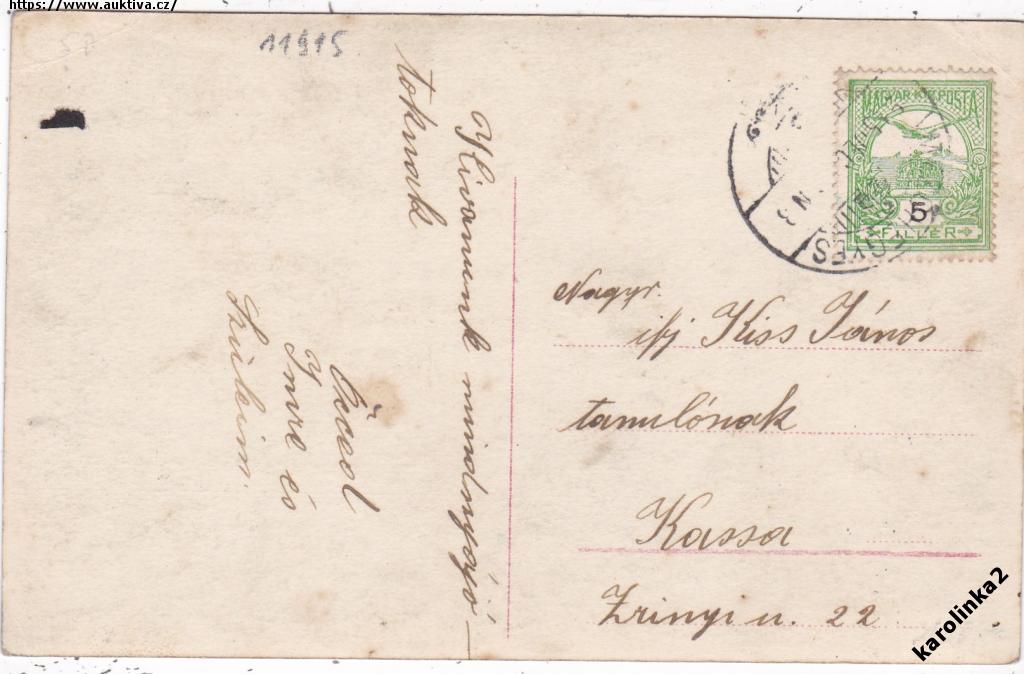 https://www.auktiva.cz/
11915
Kivanunk mindnyájó-
toknak
Öcsod
Imre és
Szüleim.
MAGYAR KIR. POSTA
5
FILLÉR
Nagyr.
ifj Kiss János
tanulónak
Kassa
Zrinyi u. 22
karolinka2